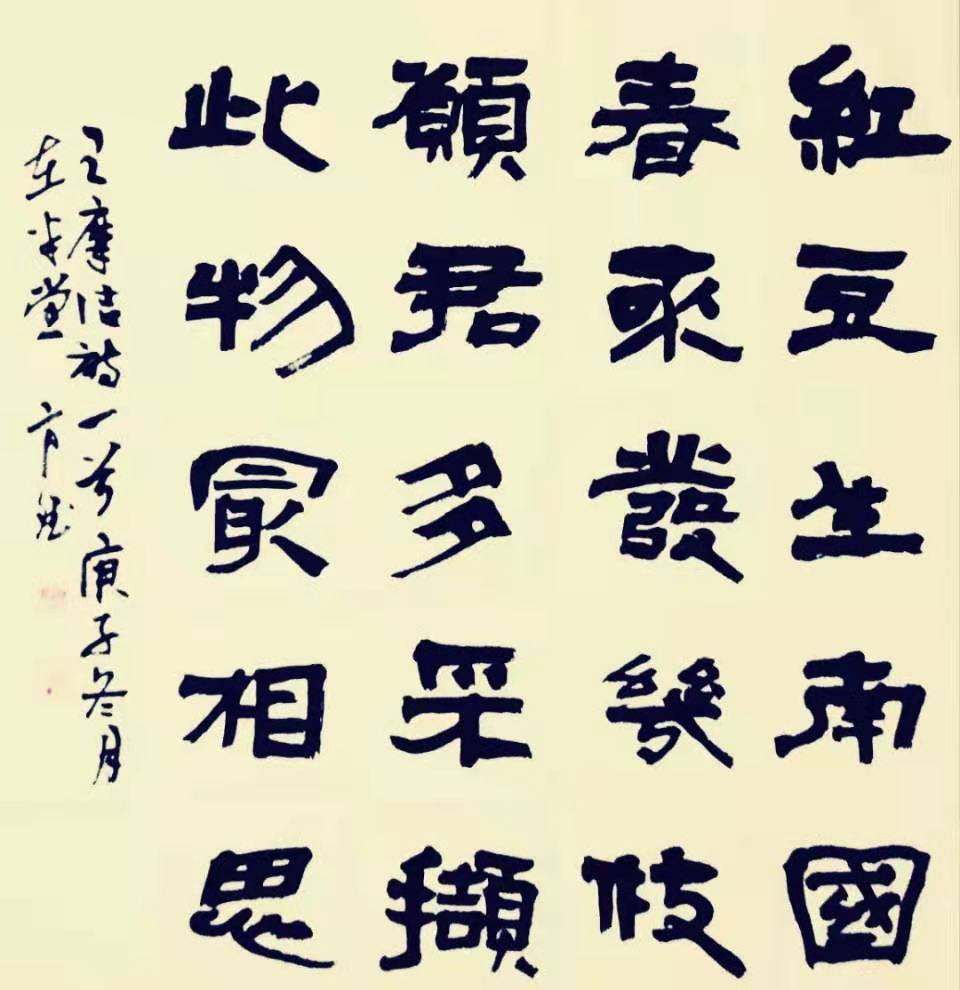 紅豆生南國
春來發幾枝
願君多采擷
此物最相思
王摩詰詩一首庚子冬月